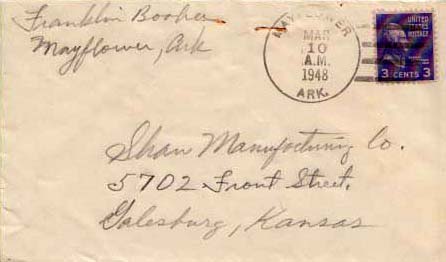 Franklin Booher
Mayflower, Ark
MAYFLOWER
MAR
10
A.M.
1948
ARK.
UNITED
STATES
POSTAGE
3 CENTS 3
Shaw Manufacturing Co.
5702 Front Street.
Galesburg, Kansas